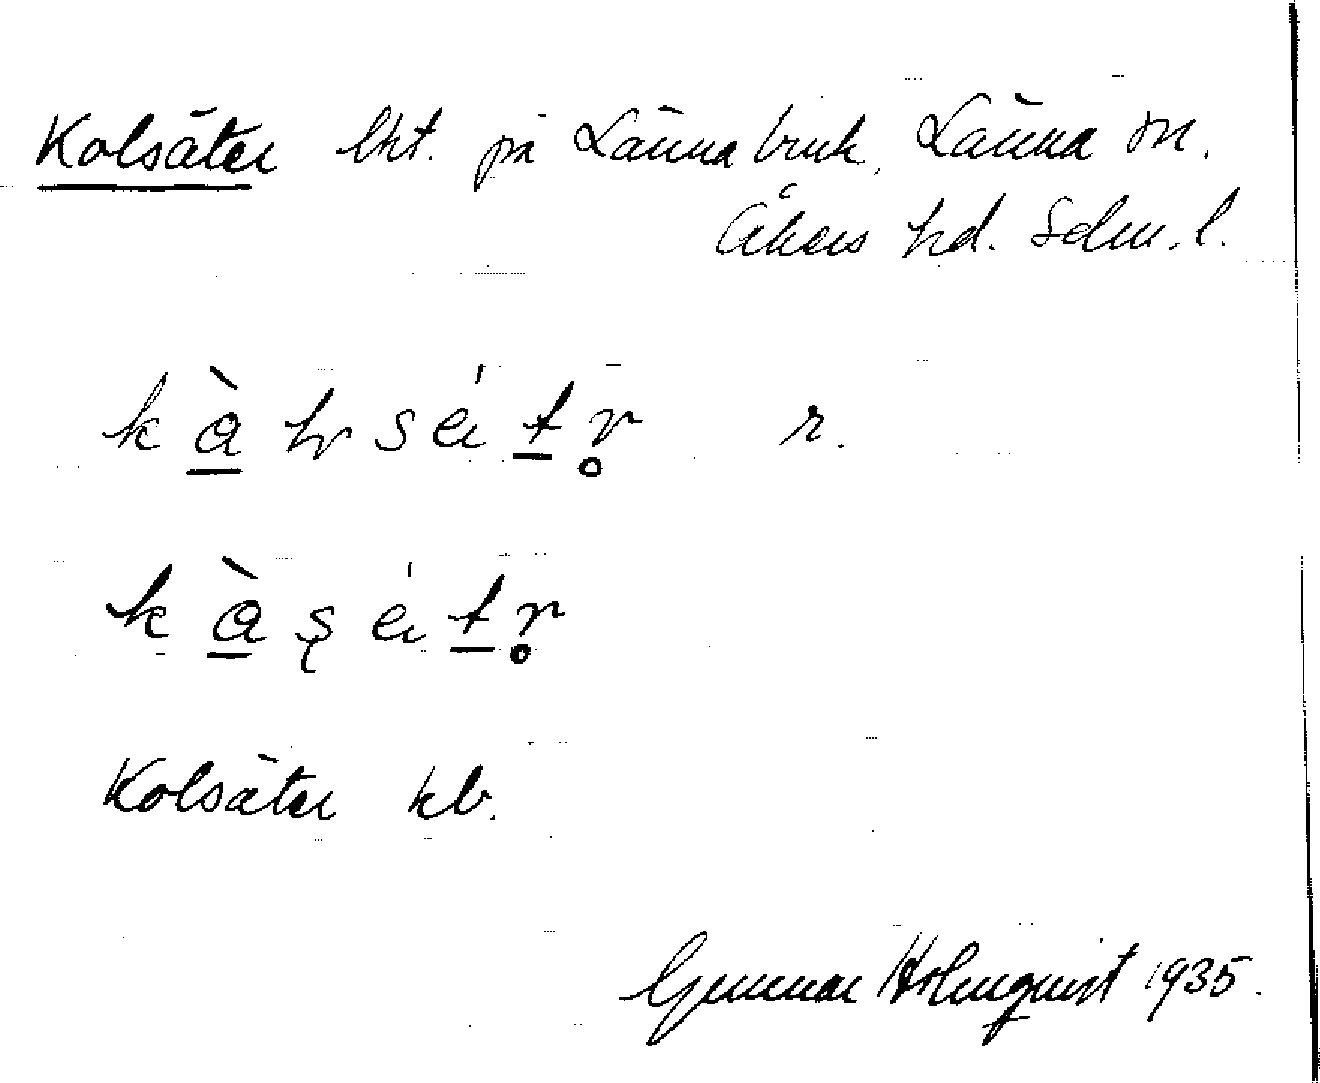 Kolsäter lht. på Länna bruk, Länna sn.
Åkers hd. Sdm. l.
r.
Kolsäter kb.
Gunnar Holmquist 1935.